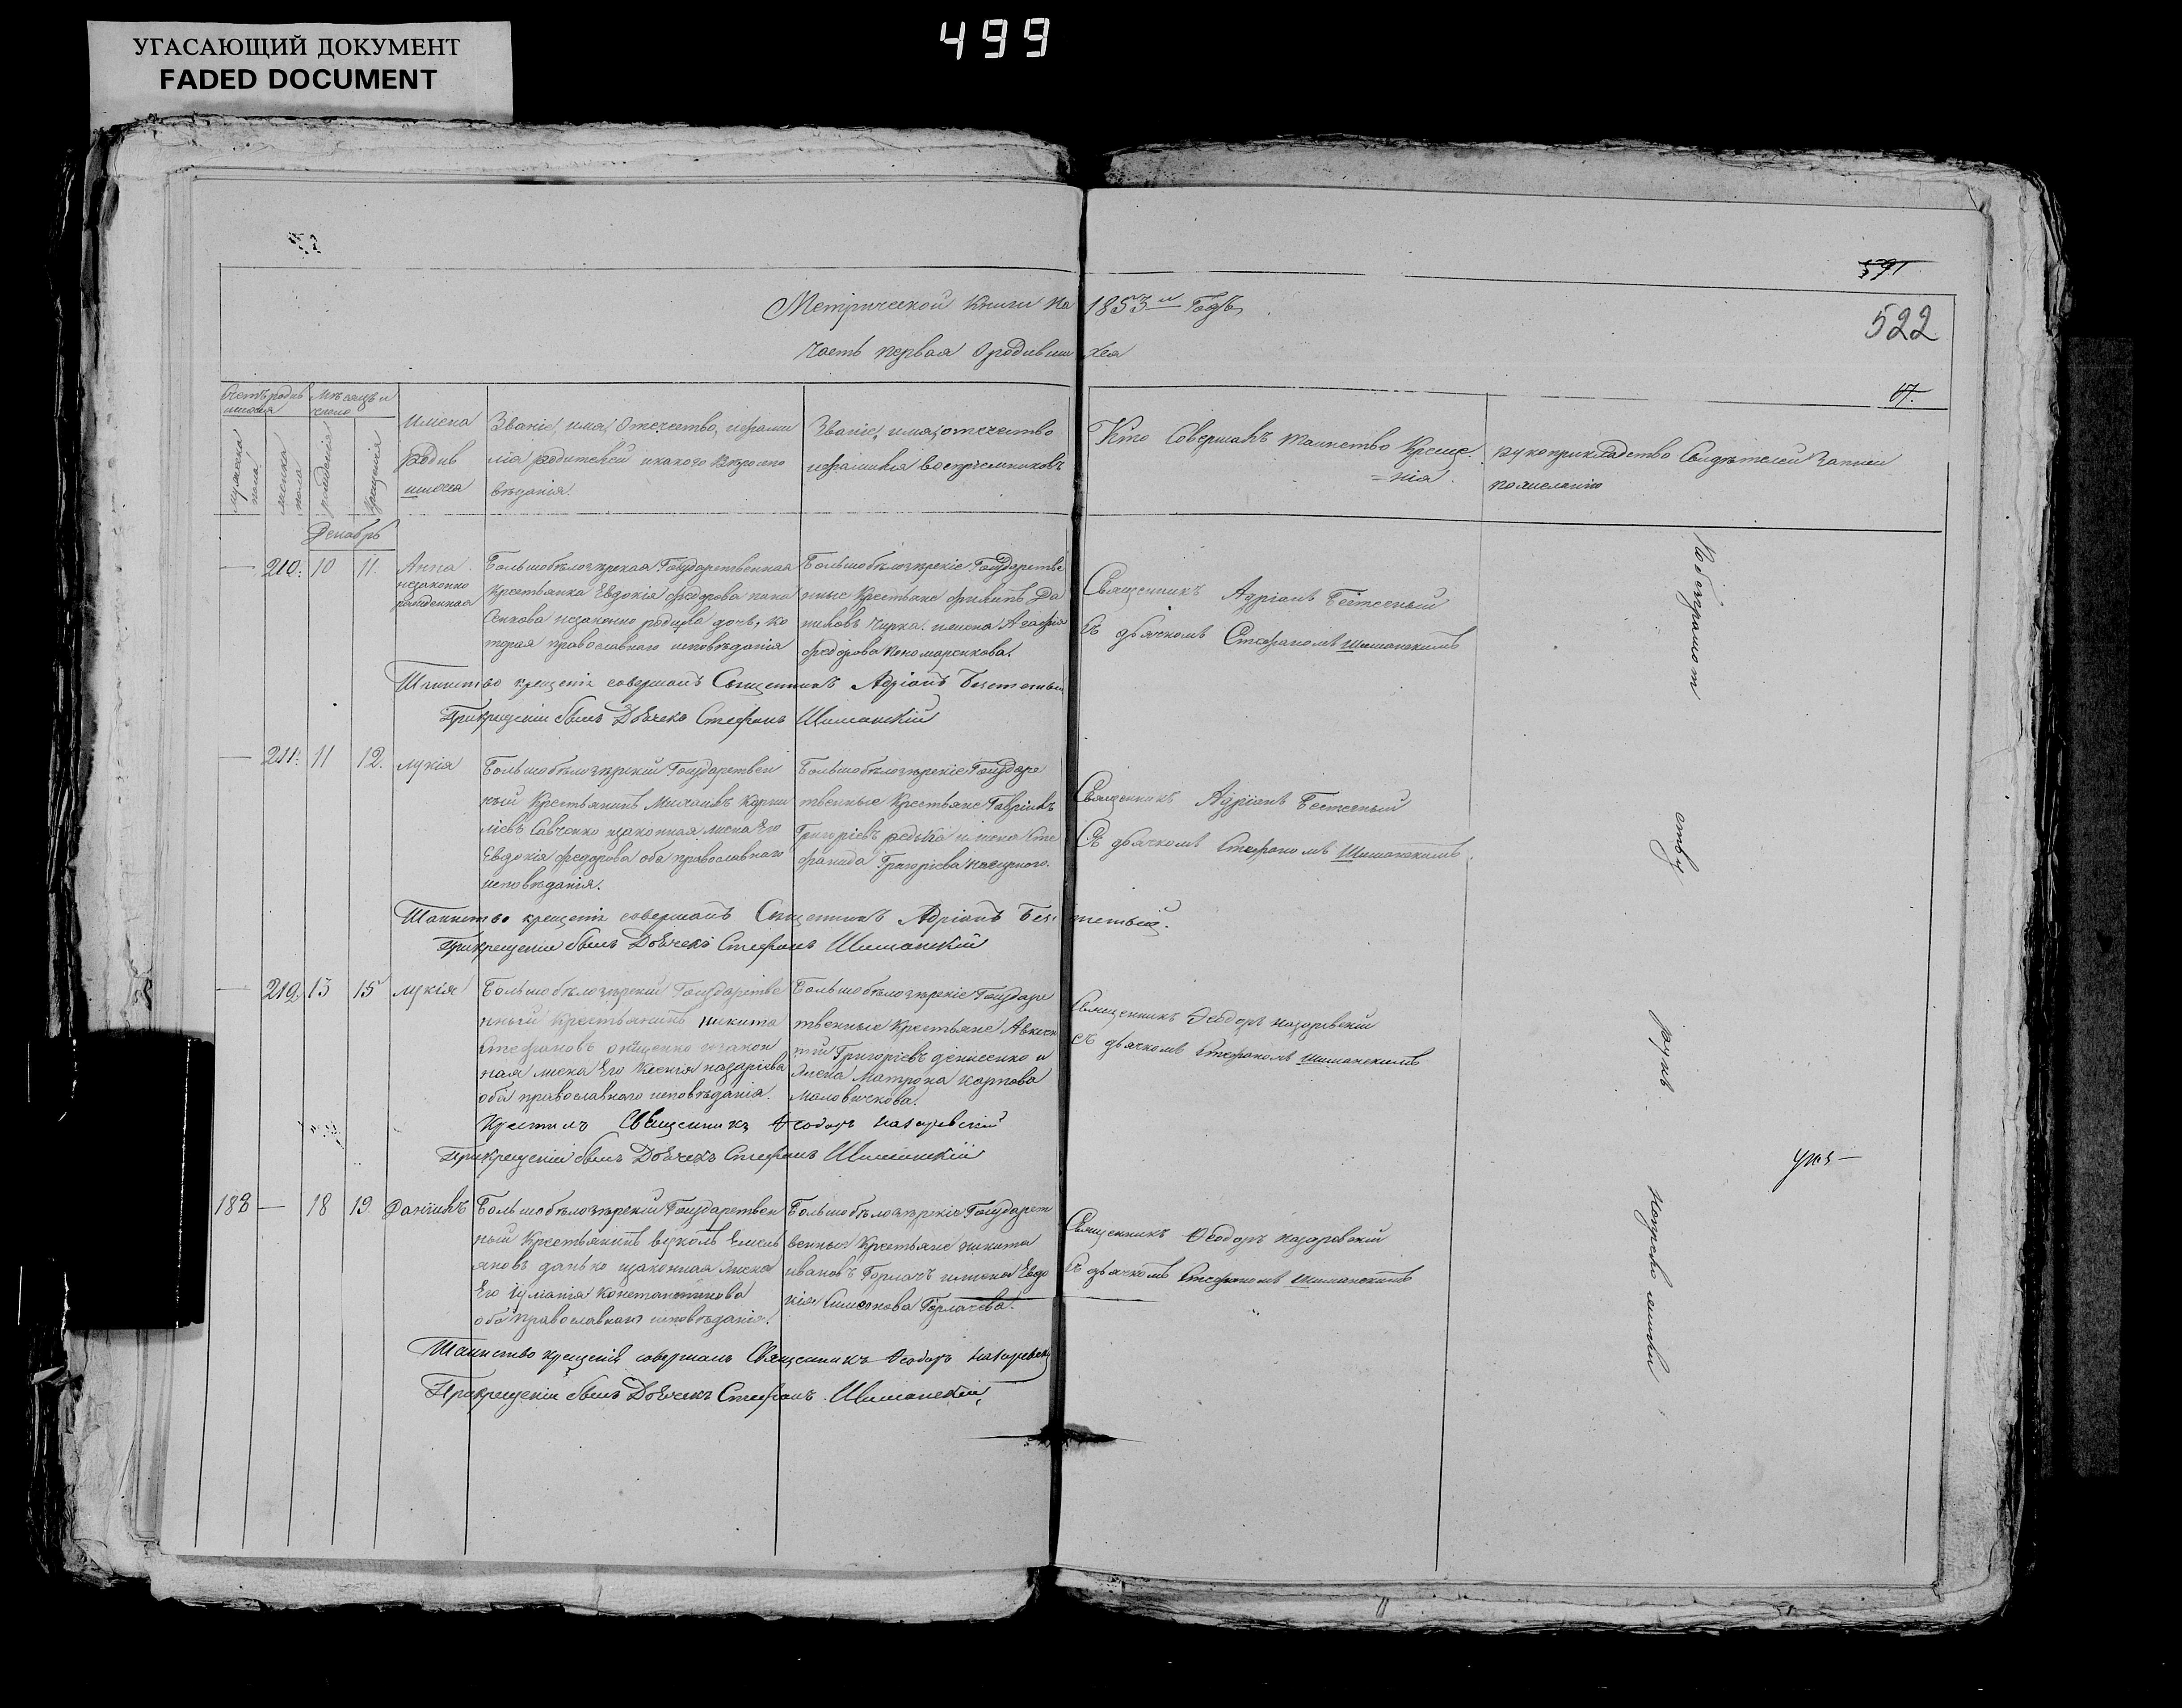 499
УГАСАЮЩИЙ ДОКУМЕНТ
FADED DOCUMENT
591
522
Метрической книги на 1853й Годъ
Часть первая о родившихся
Счетъ родившихся
Мѣсяцъ и число
мужеска пола
женска пола
рожденія
крещенія
Имена
родив
шихся
Званіе, имя, отечество, и фами
лія родителей и какого вѣроиспо
вѣданія.
Званіе, имя, отечество
и фамилія воспріемниковъ
Кто Совершалъ таинство Креще
=нія
рукоприкладство Свидѣтелей Записи
по желанію
Декабрь
— 210. 10 11.
Анна
незаконно
рожденная
Большобѣлозѣрская Государственная
Крестьянка Евдокія Федорова
незаконно родила дочь, ко
торая православнаго исповѣданія
Большобѣлозѣрскіе Государстве
нные Крестьяне Филипъ Да
ниловъ Чирка и жена Агафія
Федорова Пономаренкова.
Священникъ Адріанъ
Съ дьячкомъ Стефаномъ Шиманскимъ
Таинство крещенія совершалъ Священникъ Адріанъ
При крещеніи былъ Дьячекъ Стефанъ Шиманскій
— 211. 11 12. Лукія
Большобѣлозѣрскій Государствен
ный Крестьянинъ Михаилъ Корни
ліевъ Савченко и законная жена Его
Евдокія Федорова оба православнаго
исповѣданія.
Большобѣлозѣрскіе Государс
твенные Крестьяне Гавріилъ
Григоріевъ Редька и жена Сте
фанида Григоріева
Священникъ Адріанъ
Съ дьячкомъ Стефаномъ Шиманскимъ
Таинство крещенія совершалъ Священникъ Адріанъ
При крещеніи былъ Дьячекъ Стефанъ Шиманскій
— 212. 13 15 Лукія
Большобѣлозѣрскій Государстве
нный Крестьянинъ Никита
Стефановъ Онищенко и закон
ная жена Его Ксенія Назаріева
оба православнаго исповѣданія.
Большобѣлозѣрскіе Государс
твенные Крестьяне Авксен
тій Григоріевъ Денисенко и
жена Матрона Карпова
Маловичкова.
Священникъ Ѳеодоръ Назаревскій
съ дьячкомъ Стефаномъ Шиманскимъ
Крестилъ Священникъ Ѳеодоръ Назаревскій
При крещеніи былъ Дьячекъ Стефанъ Шиманскій
183 — 18 19. Даніилъ
Большобѣлозѣрскій Государствен
ный Крестьянинъ Вуколъ Емель
яновъ Данько и законная жена
Его Іуліанія Константинова
оба православнаго исповѣданія.
Большобѣлозѣрскіе Государст
венные Крестьяне Никита
Ивановъ Горлачъ и жена Евдо
кія Симеонова Горлачева.
Священникъ Ѳеодоръ Назаревскій
Съ дьячкомъ Стефаномъ Шиманскимъ
Таинство крещенія совершалъ Священникъ Ѳеодоръ Назаревскій
При крещеніи былъ Дьячекъ Стефанъ Шиманскій
По безграмот
ству